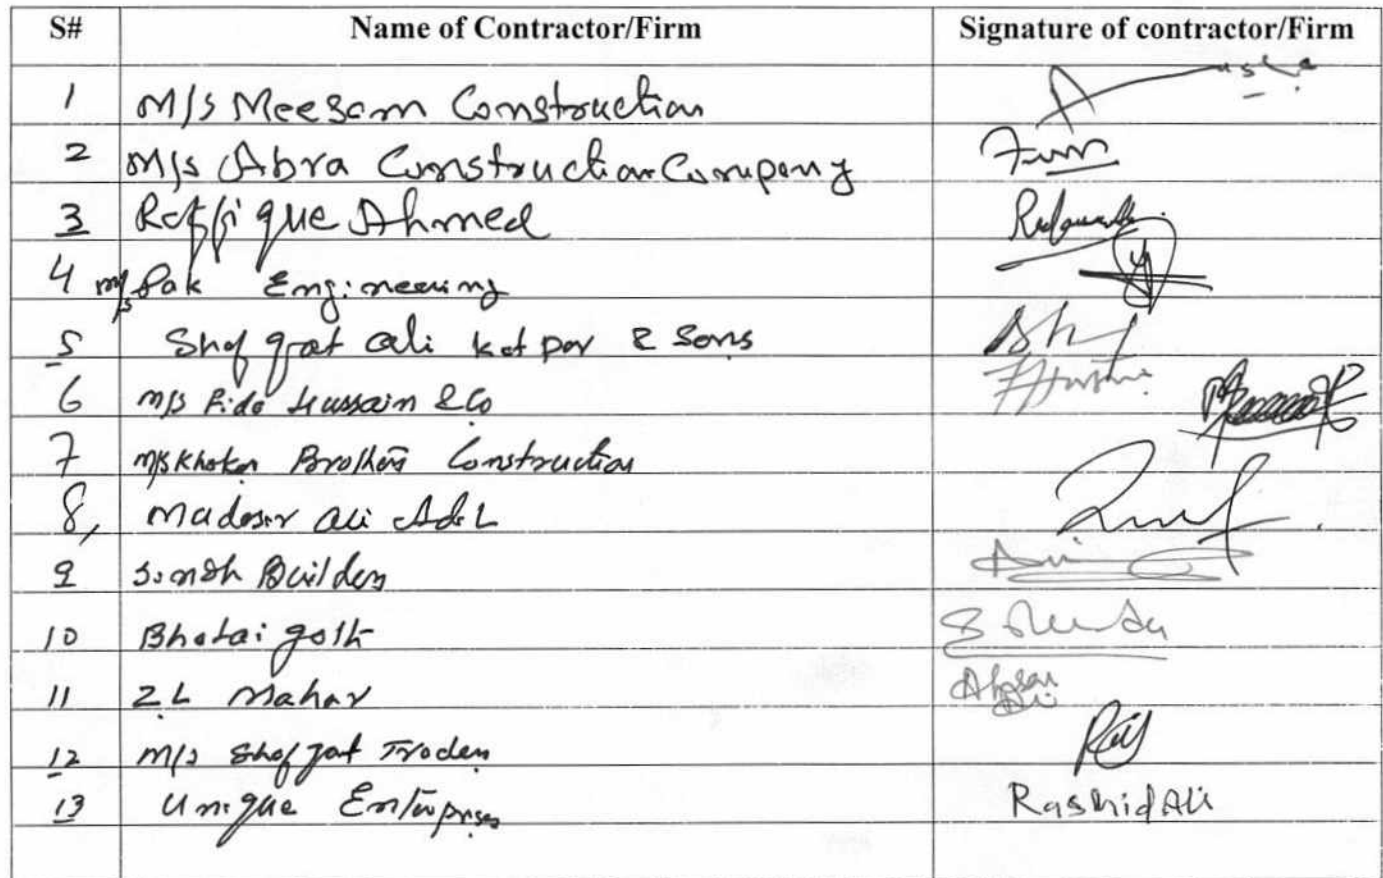 S# Name of Contractor/Firm Signature of contractor/Firm
1 M/S Meesam Construction
2 M/s Abra Construction Company
3 Raffique Ahmed
4 m/s Pak Engineering
5 Shafqat Ali Katpar & Sons
6 m/s Fida Hussain & Co
7 m/s Khokar Brothers Construction
8, Mudasir Ali Adil
9 Sindh Builders
10 Bhatai goth
11 Z.L Mahar
12 M/s Shafqat Traders
13 Unique Enterprises Rashid Ali